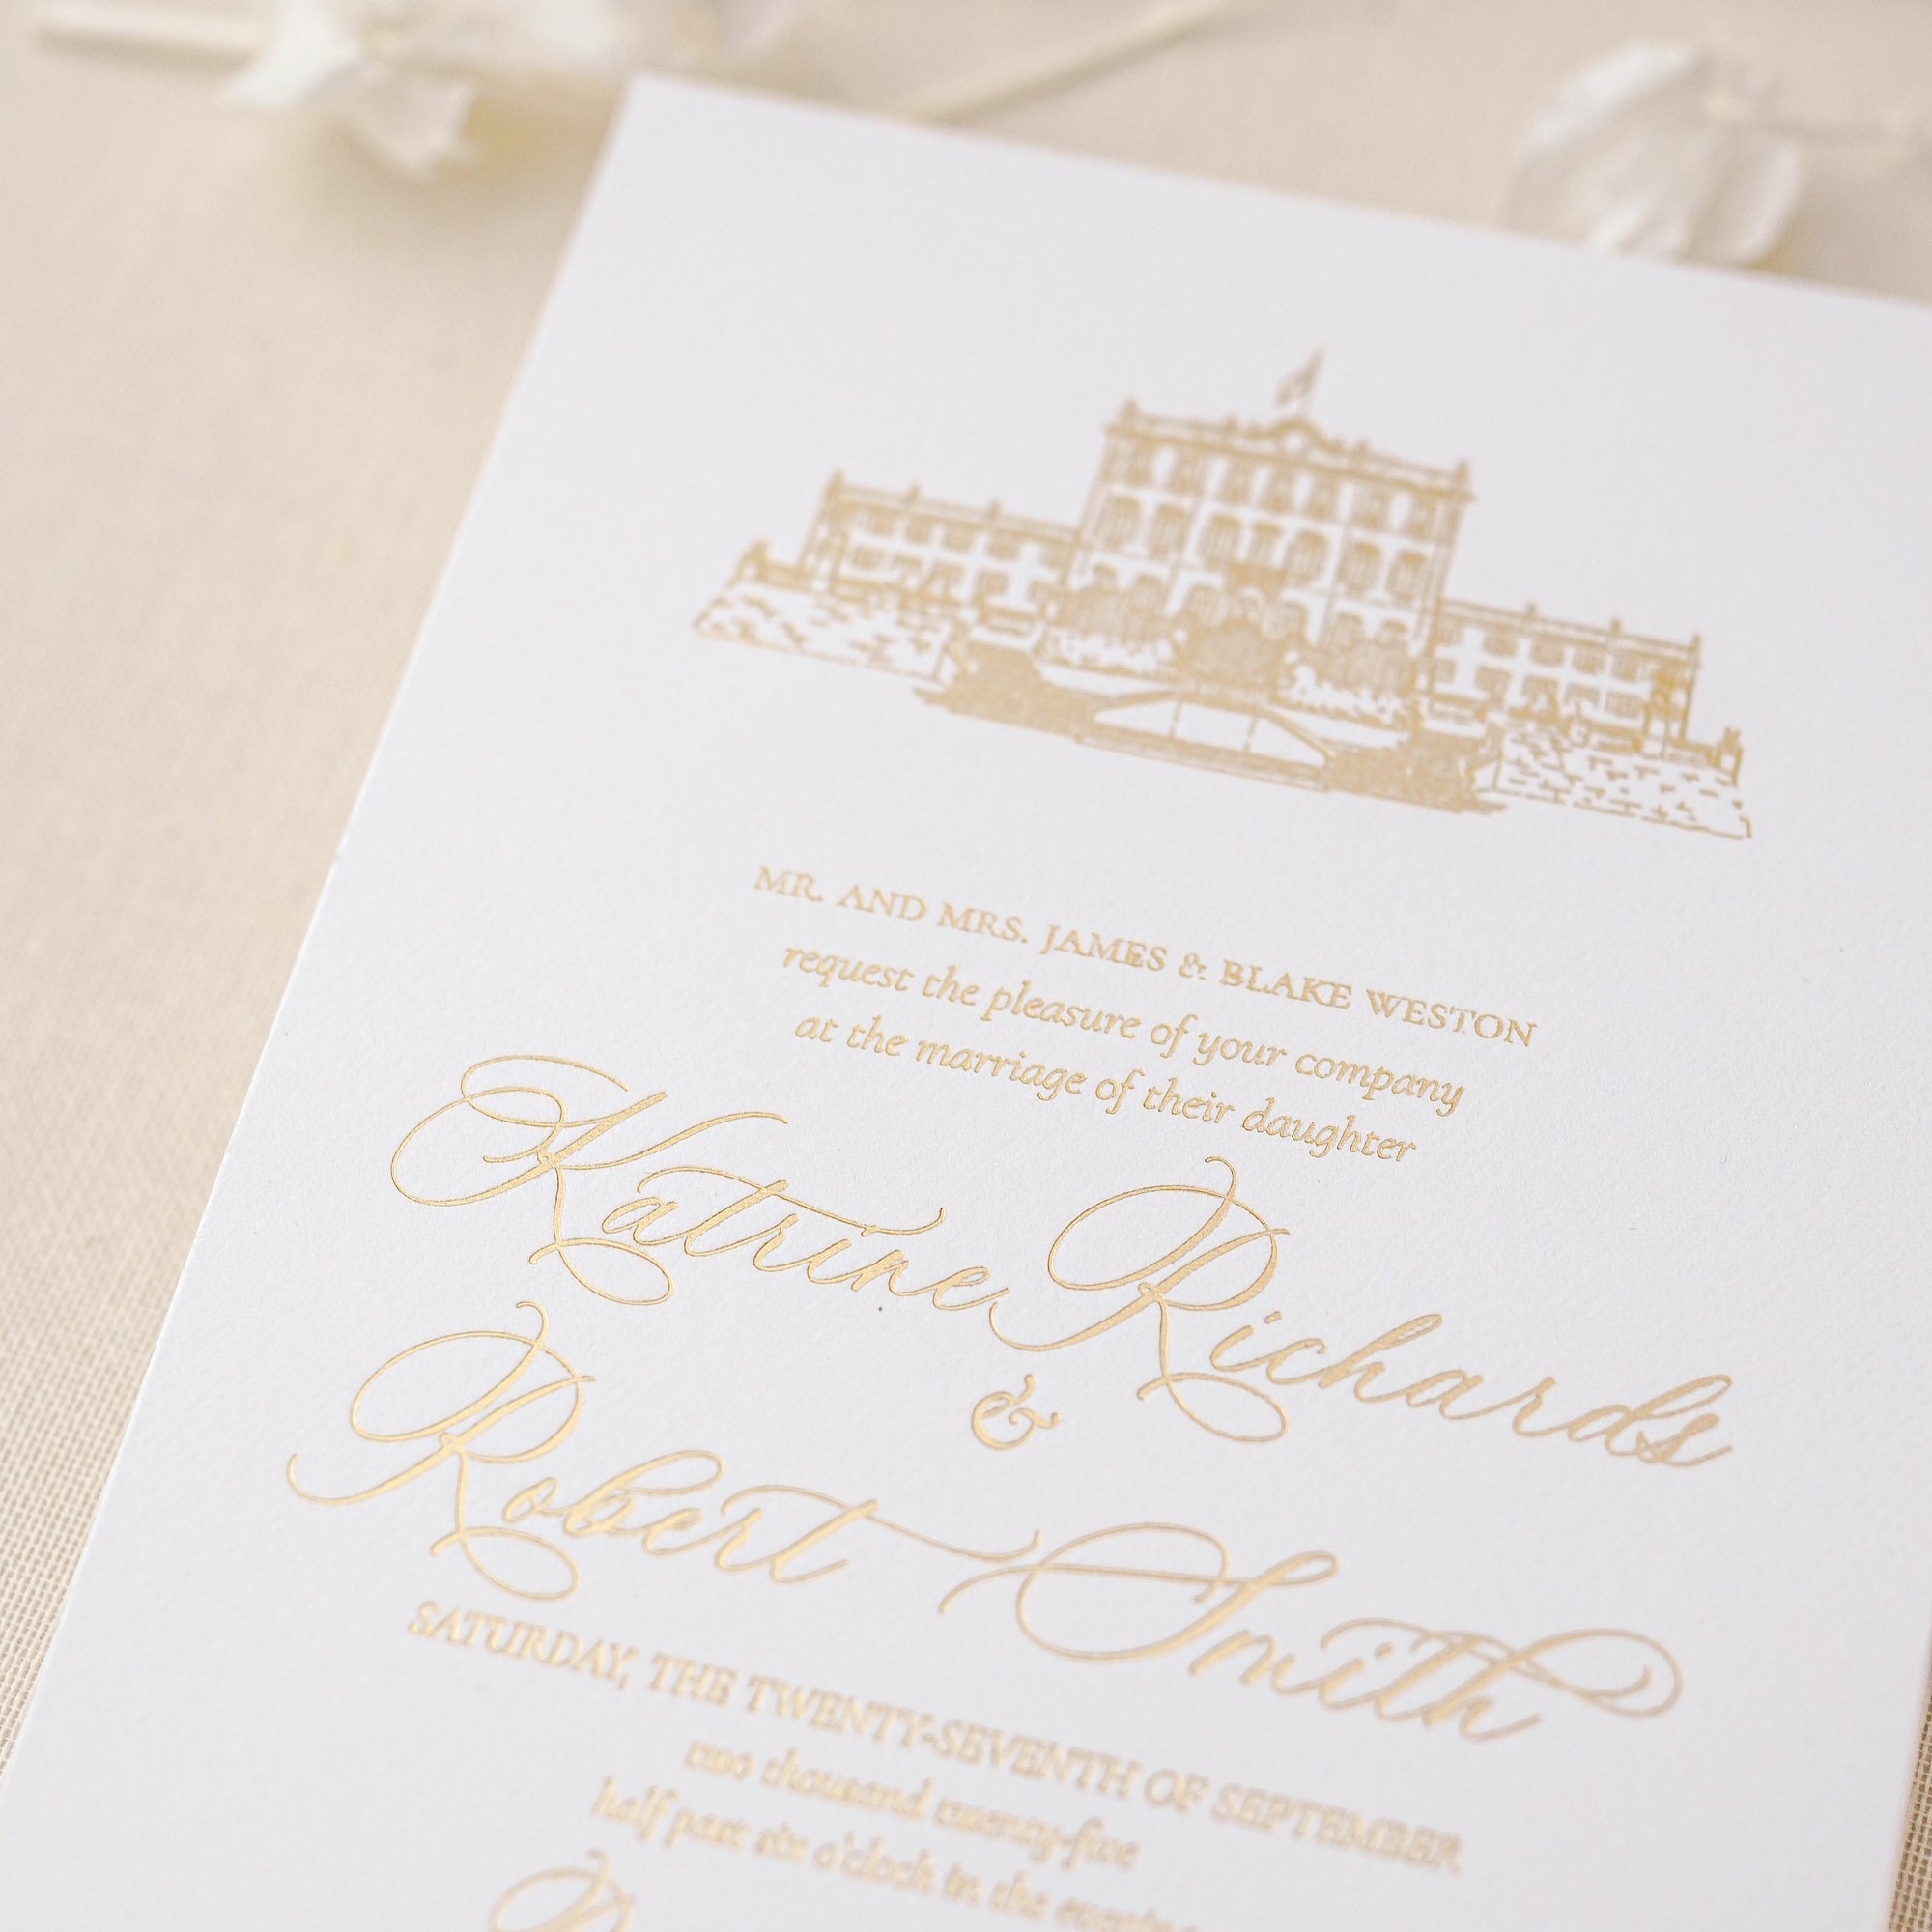 MR. AND MRS. JAMES & BLAKE WESTON
request the pleasure of your company
at the marriage of their daughter
Katrine Richards
&
Robert Smith
SATURDAY, THE TWENTY-SEVENTH OF SEPTEMBER
two thousand twenty-five
half past six o'clock in the